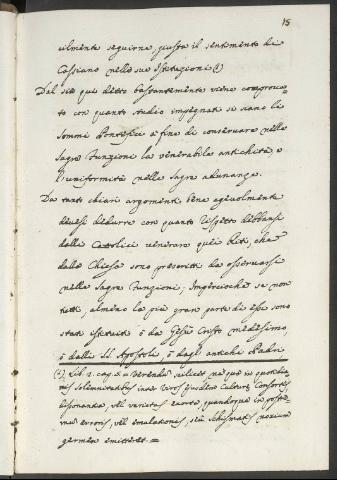 15
cilmente seguirne, giusta il sentimento di
Cassiano nelle sue Istituzioni (1)
Dal sin qui detto bastantemente viene comprova=
to con quanto studio impegnati si siano li
Sommi Pontefici a fine di conservare nelle
Sagre Funzioni la venerabile antichità, e
l'uniformità nelle Sagre adunanze.
Da tanti chiari argomenti bene agevolmente
devesi dedurre con quanto rispetto debbansi
dalli Cattolici venerare quei Riti, che
dalla Chiesa sono prescritti da osservarsi
nelle Sagre Funzioni; Imperciochè se non
tutti, almeno la più gran parte di essi sono
stati istituiti ò da Gesù Cristo medesimo,
ò dalli SS. Apostoli, ò dagli antichi Padri
(1) Lib. 2. cap. 2 = Verendum scilicet, ne quà in quotidia
nis solemnitatibus inter viros ejusdem Culturæ Consortes,
dissonantia, vel varietas exorta, quandoque in poste
rum erroris, vel emulationis, seù Schismatis noxium
germen emitteret =